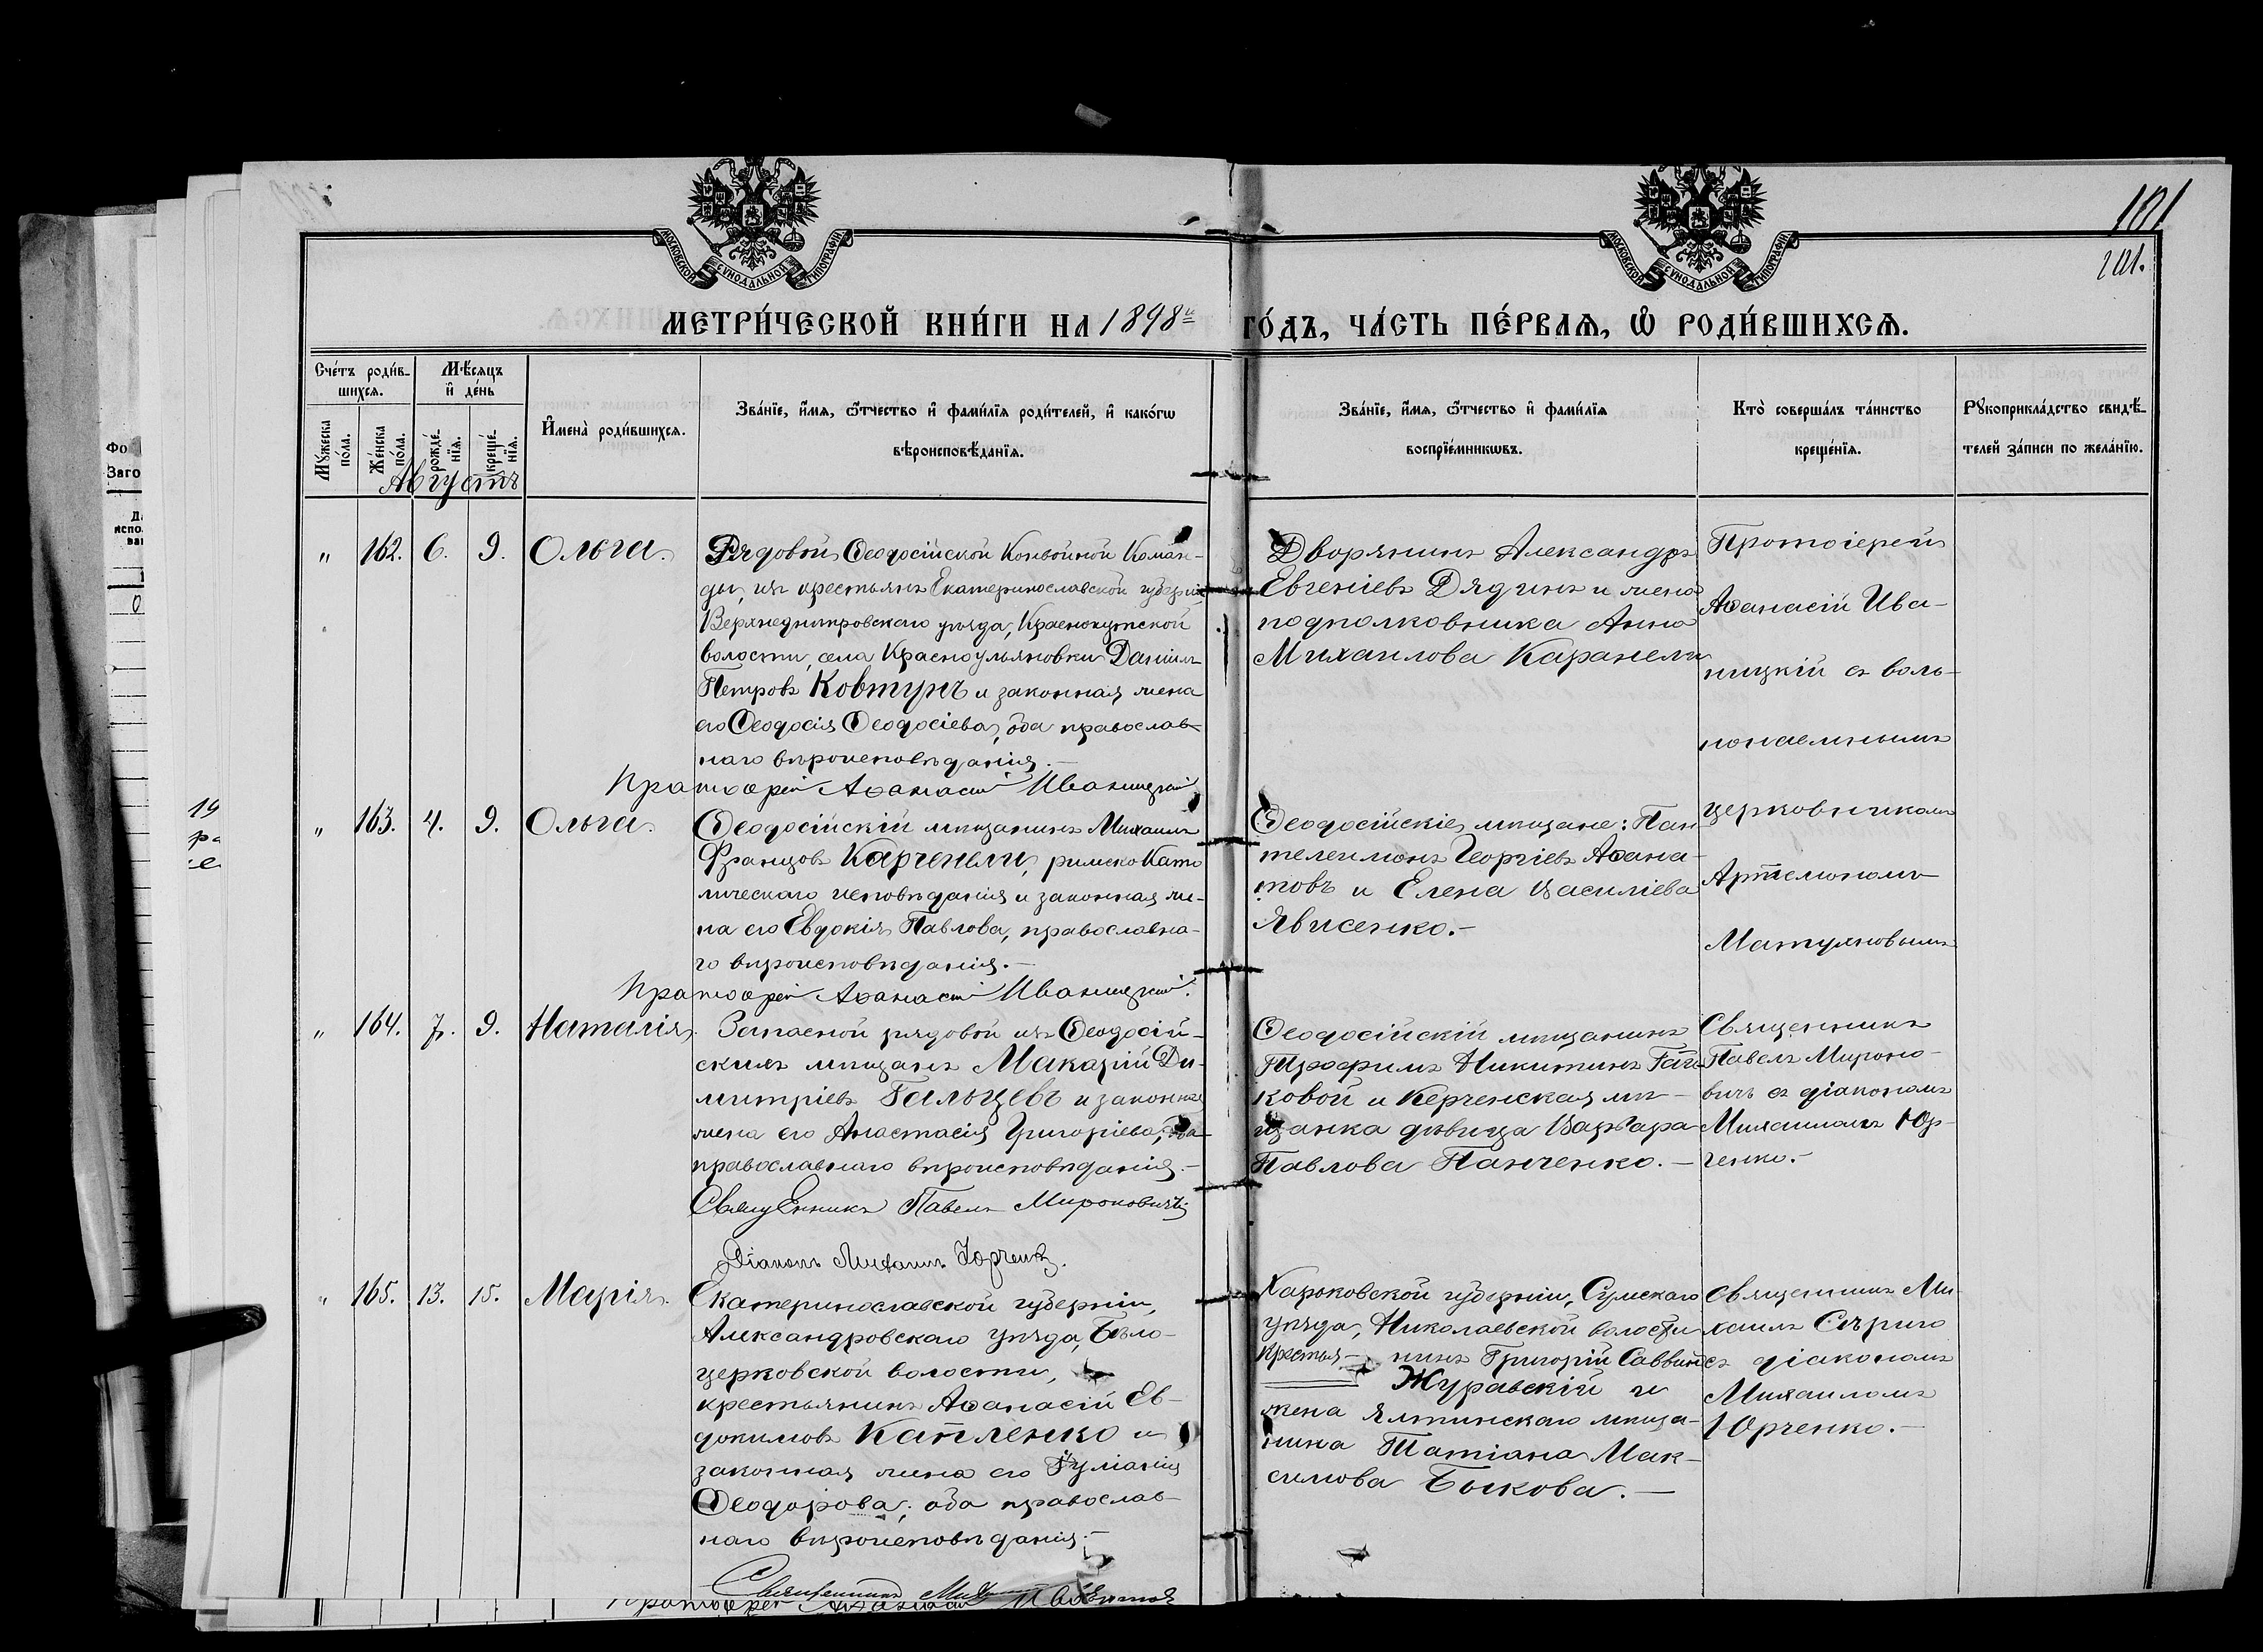 101
101.
МОСКОВСКОЙ СѴНОДАЛЬНОЙ ТИПОГРАФІИ
МОСКОВСКОЙ СѴНОДАЛЬНОЙ ТИПОГРАФІИ
МЕТРИ́ЧЕСКОЙ КНИ́ГИ НА 1898й ГО́ДЪ, ЧА́СТЬ ПЕ́РВАѦ, Ѡ РОДИ́ВШИХСѦ.
Сче́тъ роди́вшихсѧ.
Мꙋ́жеска по́ла.
Же́нска по́ла.
Мѣ́сѧцъ и҆ де́нь
рожде́нїѧ.
креще́нїѧ.
И҆мена̀ роди́вшихсѧ.
Зва́нїе, и҆́мѧ, ѻ҆́тчество и҆ фами́лїѧ роди́телей, и҆ како́гѡ
вѣроисповѣ́данїѧ.
Зва́нїе, и҆́мѧ, ѻ҆́тчество и҆ фами́лїѧ
воспрїе́мникѡвъ.
Кто̀ соверша́лъ та́инство
креще́нїѧ.
Рꙋкоприкла́дство свидѣ́-
телей за́писи по жела́нїю.
Августъ
" 162. 6. 9. Ольга.
Рядовой Ѳеодосійской Конвойной Коман-
ды, изъ крестьянъ Екатеринославской губерніи,
Верхнеднѣпровскаго уѣзда, Краснокутской
волости, села Красноульяновки Даніилъ
Петровъ Ковтунъ и законная жена
его Ѳеодосія Ѳеодосіева, оба православ-
наго вѣроисповѣданія.—
Протоіерей Аѳанасій Иваницкій
Дворянинъ Александръ
Евгеніевъ Дядинъ и жена
подполковника Анна
Михаилова Каранели
Протоіерей
Аѳанасій Ива-
ницкій съ воль-
нонаемнымъ
церковникомъ
Артемономъ
Матуяновымъ
" 163. 4. 9. Ольга.
Ѳеодосійскій мѣщанинъ Михаилъ
Францовъ Карченели, римско Като
лическаго исповѣданія и законная же-
на его Евдокія Павлова, православна-
го вѣроисповѣданія.—
Протоіерей Аѳанасій Иваницкій.
Ѳеодосійскіе мѣщане: Пан
телеимонъ Георгіевъ Аѳана-
товъ и Елена Василіева
Явисенко.—
" 164. 7. 9. Наталія.
Запасной рядовой изъ Ѳеодосій-
скихъ мѣщанъ Макарій Ди-
митріевъ Гальцевъ и законная
жена его Анастасія Григоріева, оба
православнаго вѣроисповѣданія.—
Священникъ Павелъ Мироновичъ
Діаконъ Михаилъ Юрченко.
Ѳеодосійскій мѣщанинъ
Трофимъ Никитинъ
ковой и Керченская мѣ-
щанка дѣвица Варвара
Павлова Панченко.—
Священникъ
Павелъ Мироно-
вичъ съ діакономъ
Михаиломъ Юр-
ченко.—
" 165. 13. 15. Марія.
Екатеринославской губерніи,
Александровскаго уѣзда, Бѣло-
церковской волости,
крестьянинъ Аѳанасій Ев-
докимовъ Капленко и
законная жена его Іуліанія
Ѳеодорова, оба православ-
наго вѣроисповѣданія.—
Священникъ
Харьковской губерніи, Сумскаго
уѣзда, Николаевской волости
крестья- нинъ Григорій Саввинъ
Журавскій и
жена Ялтинскаго мѣща-
нина Татіана Мак-
симова Быкова.—
Священникъ Ми
хаилъ Сѣрико
съ діакономъ
Михаиломъ
Юрченко.—